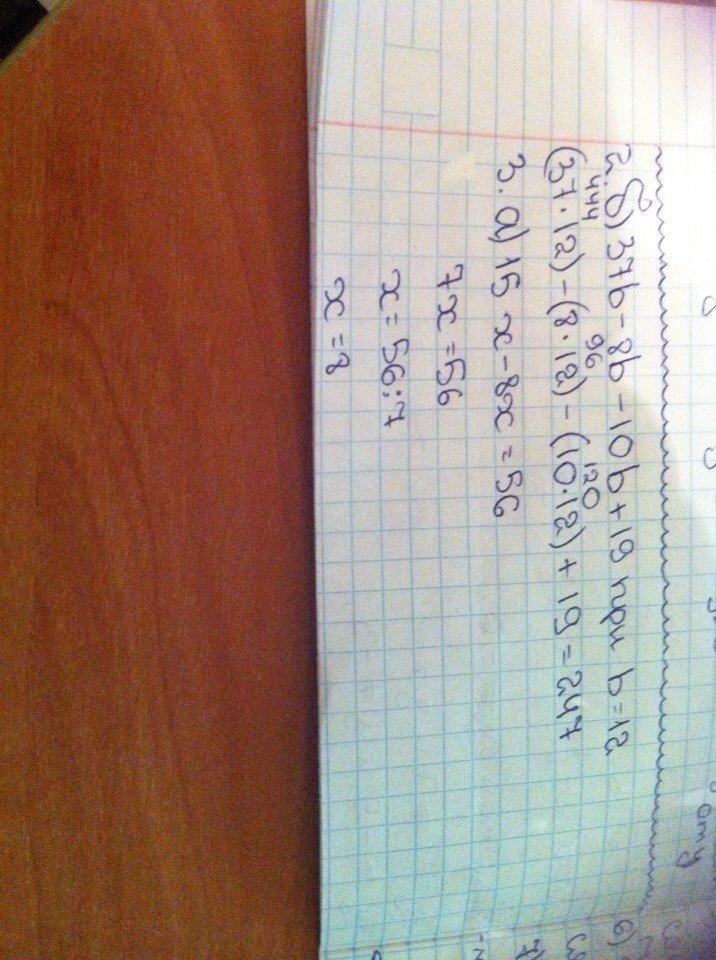 2. б) 37b - 8b - 10b + 19 при b = 12
444 96 120
(37·12) - (8·12) - (10·12) + 19 = 247
3. а) 15 x - 8x = 56
7x = 56
x = 56:7
x = 8